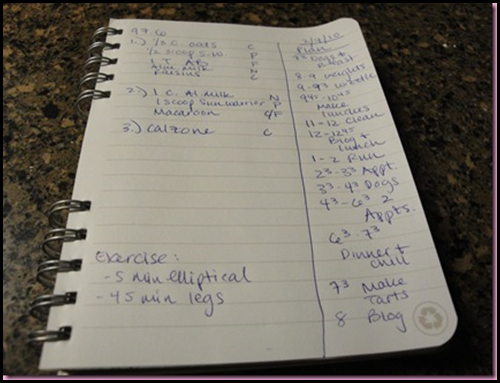 99.6
1.) 1/3 c. oats C
1/2 scoop S.W. P
1 T AB F
Alm. Milk N
Raisins C
2.) 1 C. Al Milk N
1 scoop Sunwarrier P
Macaroon C/F
3.) Calzone C
Exercise:
- 5 min elliptical
- 45 min legs
Plan
7³ Dogs +
Breast
8-9 weights
9-9³
Make
Lunches
11-12 Clean
12-12⁴⁵
Blog +
Lunch
1-2 Run
2³-3³ Appt.
3³-4³ Dogs
4³-6³ 2
Appts.
6³-7³
Dinner +
Chill
7³ Make
Tarts
8 Blog